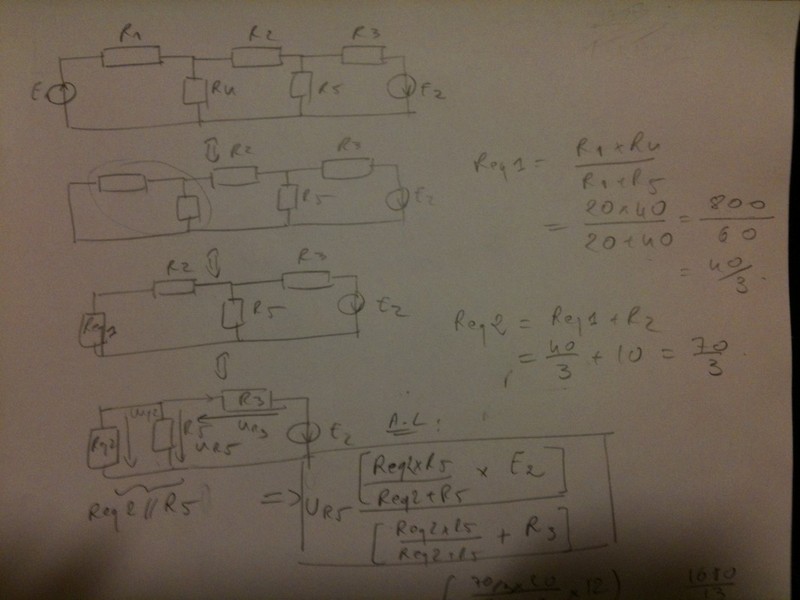 R1 R2 R3
E R4 R5 E2
R2 R3
R5 E2
Req1 = R1 x R4 / R1 + R5
= 20 x 40 / 20 + 40 = 800 / 60
= 40/3.
R2 R3
Req1 R5 E2
Req2 = Req1 + R2
= 40/3 + 10 = 70/3.
R3
Req2 R5 UR5 UR3 E2
A.L :
Req2 // R5
=> UR5 [Req2 x R5 / Req2 + R5 x E2]
[Req2 x R5 / Req2 + R5 + R3]
x 12) 1680